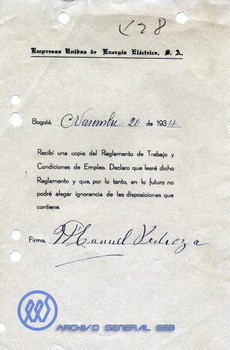 428
Empresas Unidas de Energía Eléctrica, S. A.
Bogotá, Noviembre 20 de 1934
Recibí una copia del Reglamento de Trabajo y
Condiciones de Empleo. Declaro que leeré dicho
Reglamento y que, por lo tanto, en lo futuro no
podré alegar ignorancia de las disposiciones que
contiene.
Firma, Manuel Pedraza
ARCHIVO GENERAL EEB